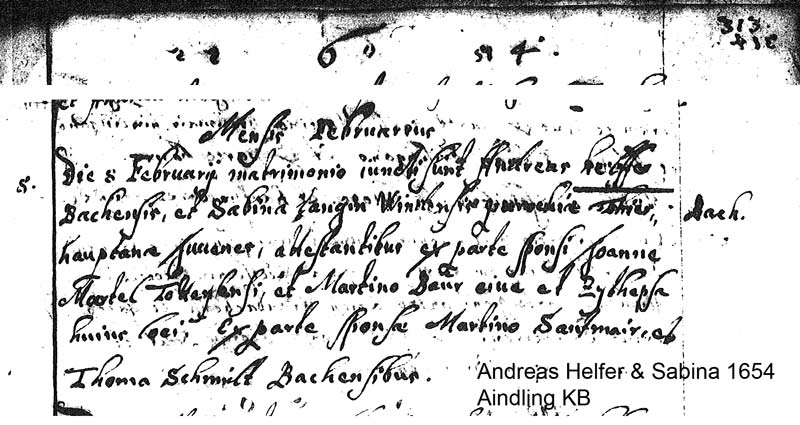 1 6 5 4.
313
Mensis Februarius
5. Die 5 Februarij matrimonio iuncti sunt Andreas Helffer
Bachensis, et Sabina Winklensis parochiæ Thier,, Bach.
hauptanæ Juvenes, attestantibus ex parte sponsi Joanne
Martel et Martino Baur cive et Zythepsæ
huius loci, Ex parte sponsæ Martino Sandtmair, et
Thoma Schmidt Bachensibus.
Andreas Helfer & Sabina 1654
Aindling KB